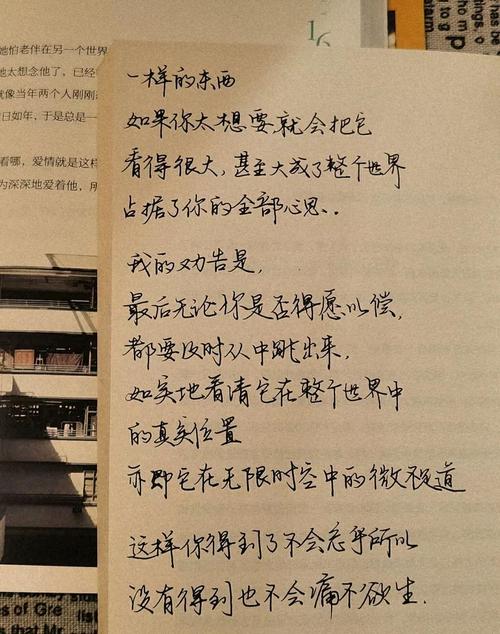 她怕老伴在另一个世界
她太想念他了，已经
就像当年两个人刚刚
日如年，于是总是一
看哪，爱情就是这样
为深深地爱着他，所
16
has be
ings, o
y to g
alarm
一样的东西
如果你太想要就会把它
看得很大，甚至大成了整个世界
占据了你的全部心思..
我的劝告是，
最后无论你是否得愿以偿，
都要及时从中跳出来，
如实地看清它在整个世界中
的真实位置
亦即它在无限时空中的微不足道
这样你得到了不会忘乎所以
没有得到也不会痛不欲生.
es of Gre
s that Mr
list